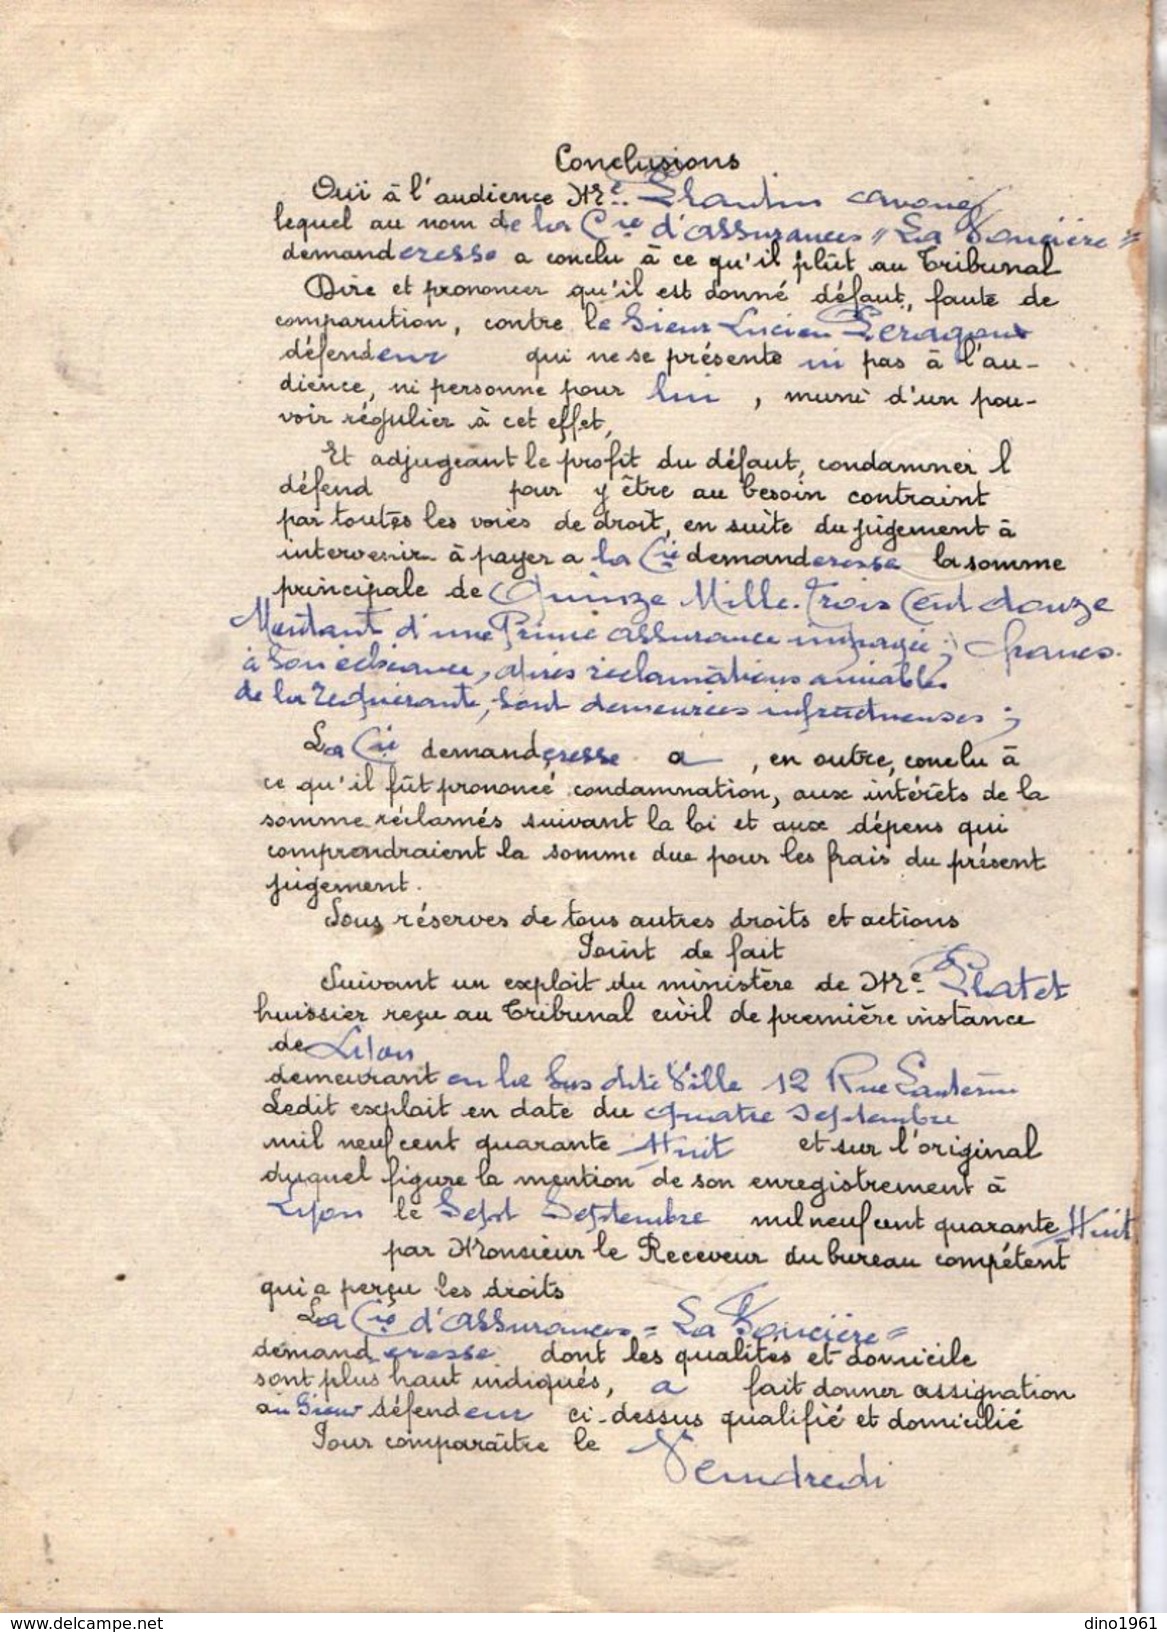 Conclusions
Ouï à l'audience Me. Plantin avoué
lequel au nom de la Cie d'assurances "La Foncière"
demanderesse a conclu à ce qu'il plût au Tribunal
Dire et prononcer qu'il est donné défaut, faute de
comparution, contre le Sieur Lucien
défendeur qui ne se présente ni pas à l'au-
dience, ni personne pour lui, muni d'un pou-
voir régulier à cet effet,
Et adjugeant le profit du défaut, condamner l
défend pour y être au besoin contraint
par toutes les voies de droit, en suite du jugement à
intervenir à payer a la Cie demanderesse la somme
principale de Quinze Mille Trois Cent douze
Montant d'une Prime assurance impayée; francs.
à son échéance, après réclamations amiables
de la requérante, sont demeurées infructueuses;
La Cie demanderesse a, en outre, conclu à
ce qu'il fût prononcé condamnation, aux intérêts de la
somme réclamés suivant la loi et aux dépens qui
comprendraient la somme due pour les frais du présent
jugement.
Sous réserves de tous autres droits et actions
Point de fait
Suivant un exploit du ministère de Me. Platet
huissier reçu au Tribunal civil de première instance
de Lyon
demeurant en la sus dite Ville 12 Rue Lanterne
Ledit exploit en date du quatre septembre
mil neuf cent quarante Huit et sur l'original
duquel figure la mention de son enregistrement à
Lyon le Sept Septembre mil neuf cent quarante Huit
par Monsieur le Receveur du bureau compétent
qui a perçu les droits
La Cie d'assurances "La Foncière"
demanderesse dont les qualités et domicile
sont plus haut indiqués, a fait donner assignation
au Sieur défendeur ci-dessus qualifié et domicilié
Pour comparaître le Vendredi
www.delcampe.net
dino1961